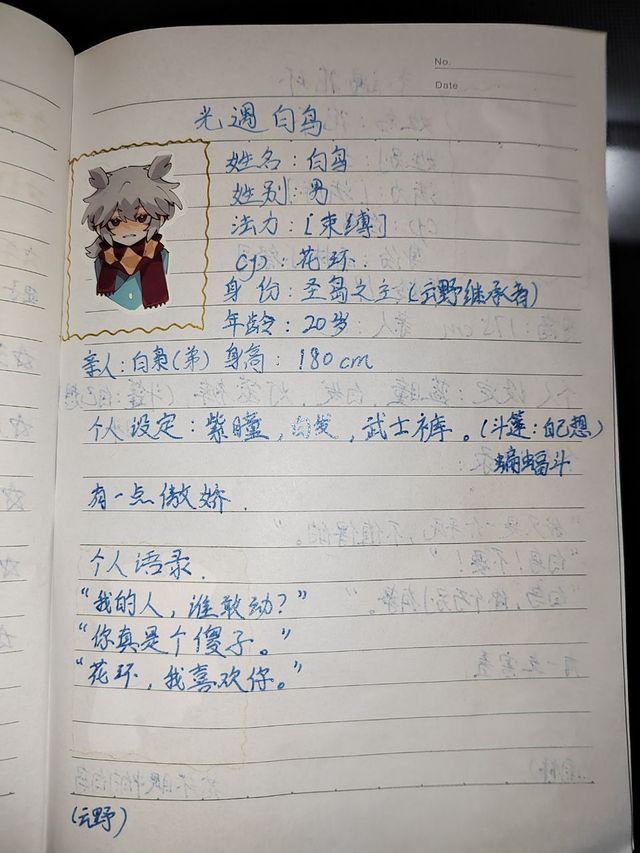 No.
Date
光遇白鸟
姓名：白鸟
姓别：男
法力：[束缚]
cp：花环
身份：圣岛之主（云野继承者）
年龄：20岁
亲人：白枭（弟） 身高：180cm
个人设定：紫瞳，白发，武士裤。（斗篷：自己想）
蝙蝠斗
有一点傲娇．
个人语录．
“我的人，谁敢动？”
“你真是个傻子。”
“花环，我喜欢你。”
（云野）